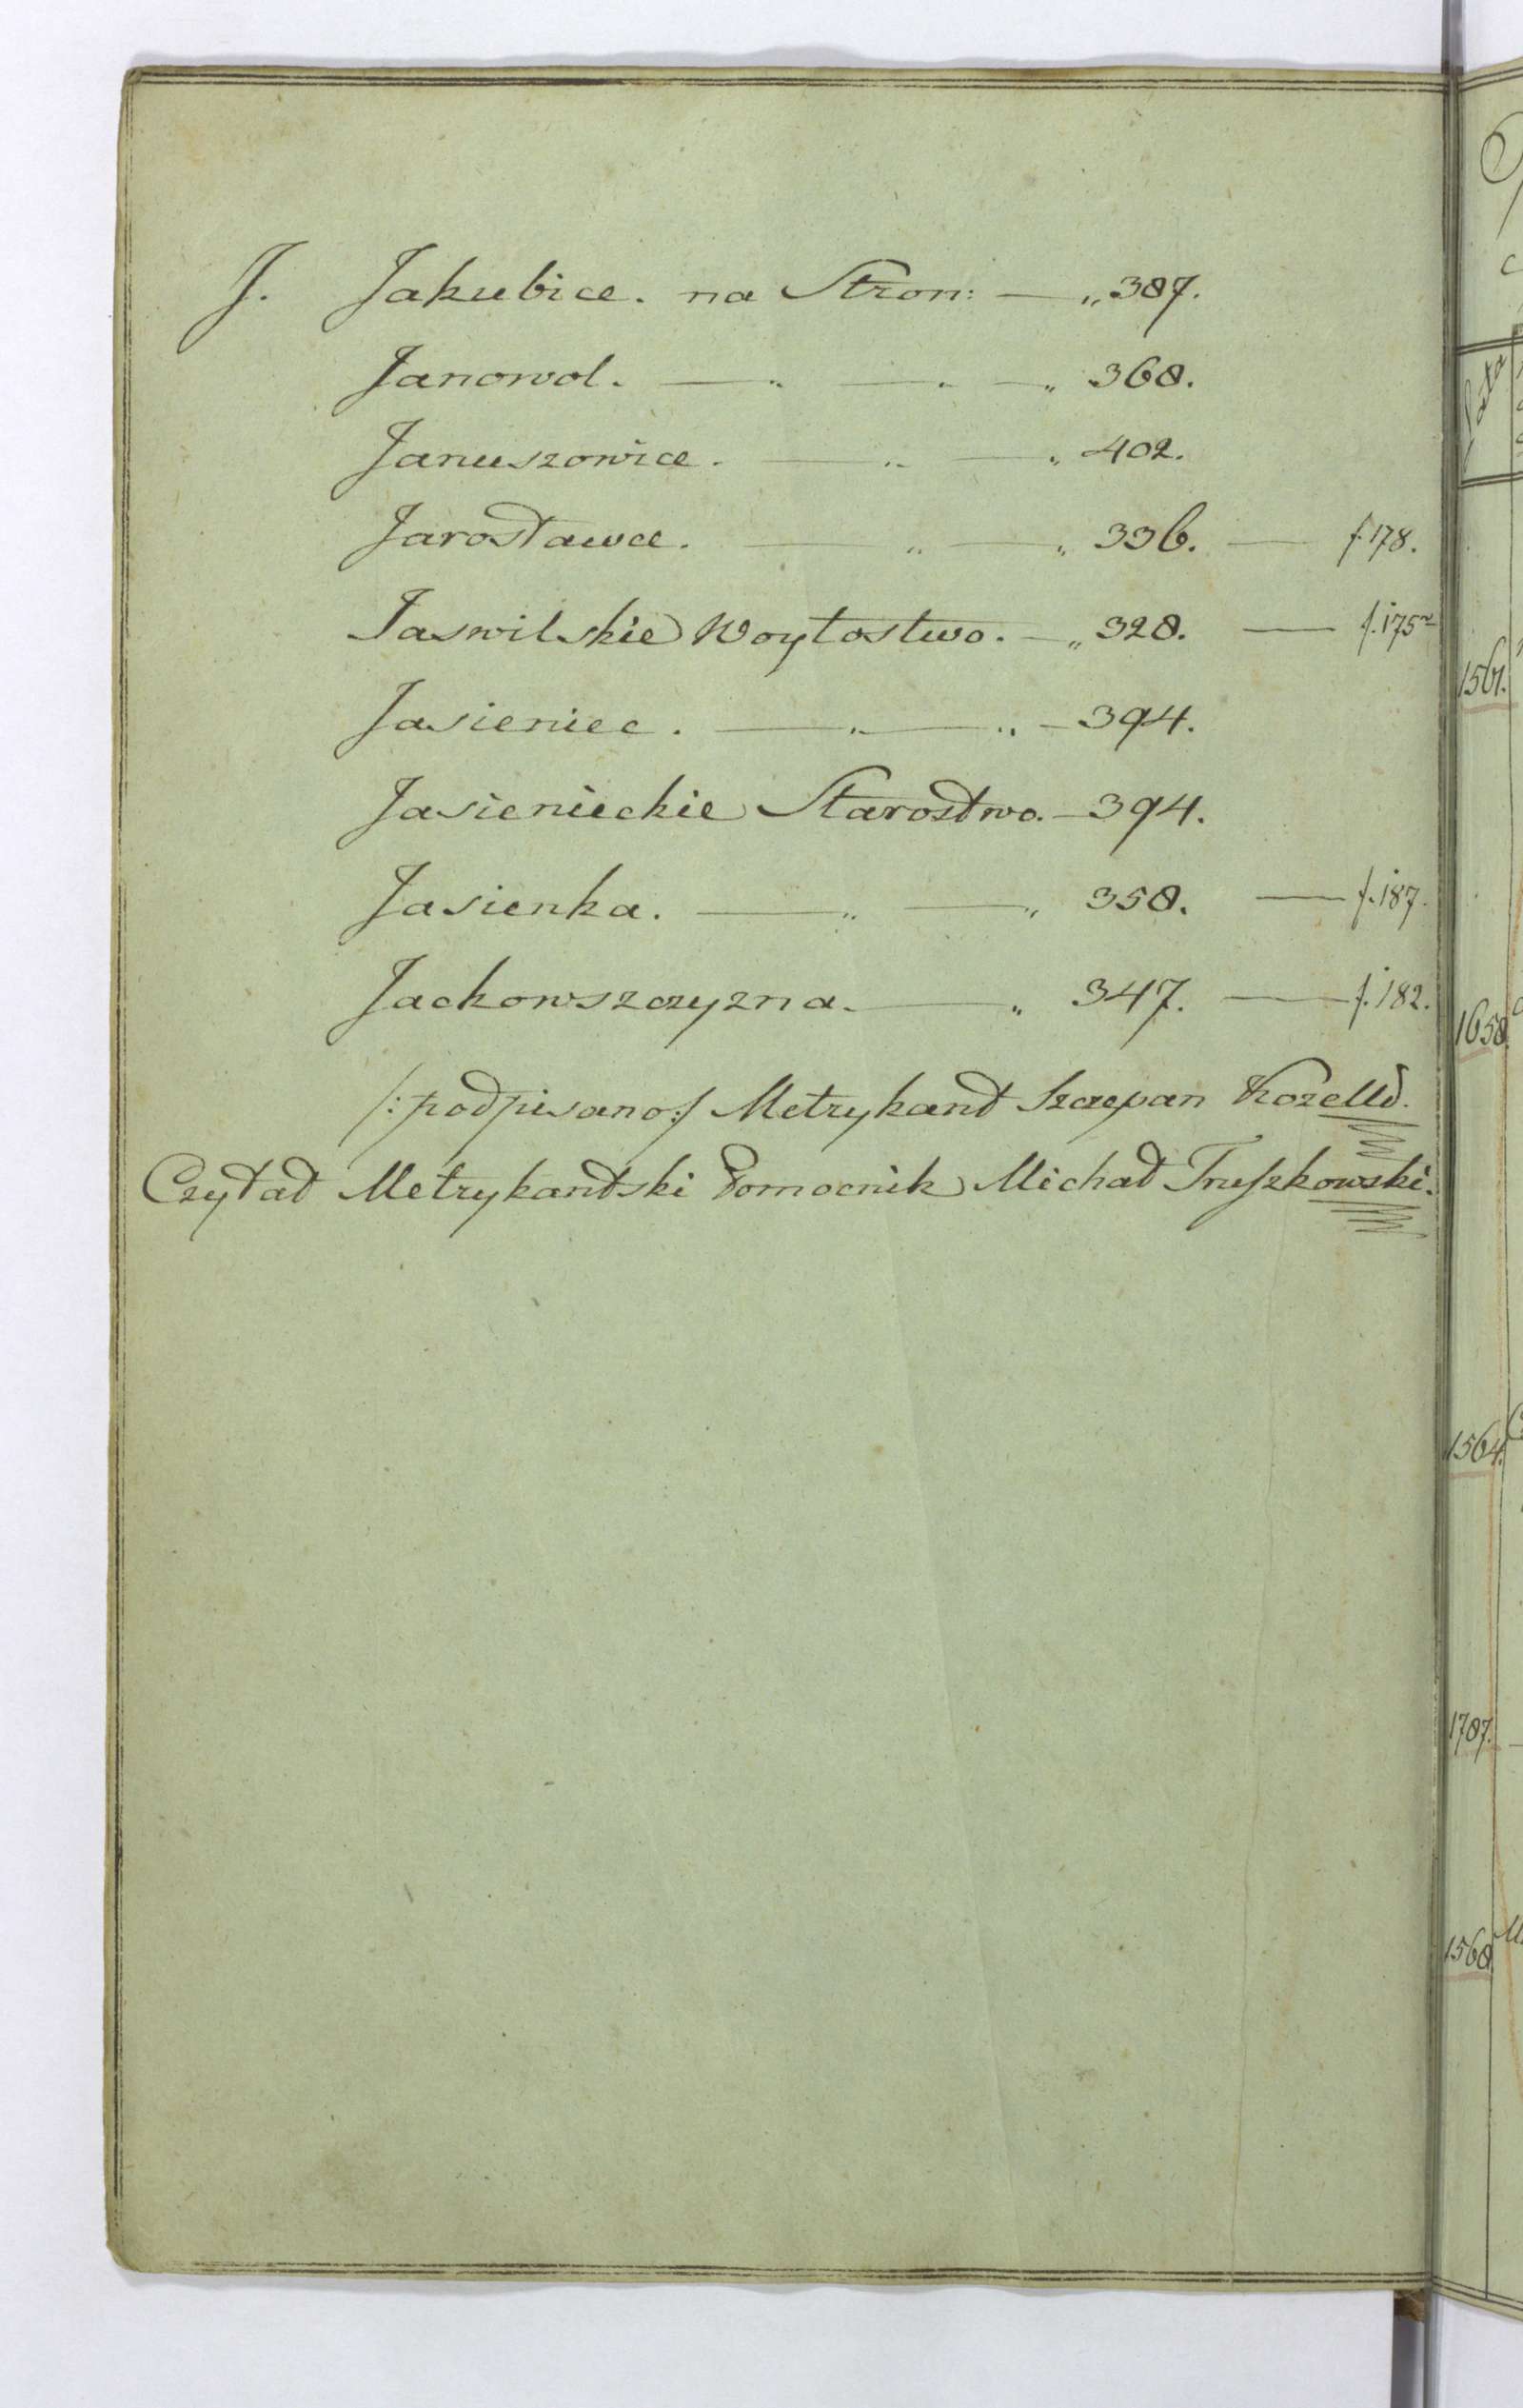 J. Jakubice. na Stron: — „ 387.
Janowol. — „ — „ — „ 368.
Januszowice. — „ — „ 402.
Jarosławce. — „ — „ 336. — f. 178.
Jaswilskie Woytostwo. — „ 328. — f. 175
Jasieniec. — „ — „ — 394.
Jasienieckie Starostwo. — 394.
Jasienka. — „ — „ 358. — f. 187.
Jackowszczyzna. — „ 347. — f. 182.
/: podpisano :/ Metrykant Szczepan Kozełło.
Czytał Metrykantski Pomocnik Michał Truszkowski.
1561.
1658.
1564.
1787.
1568